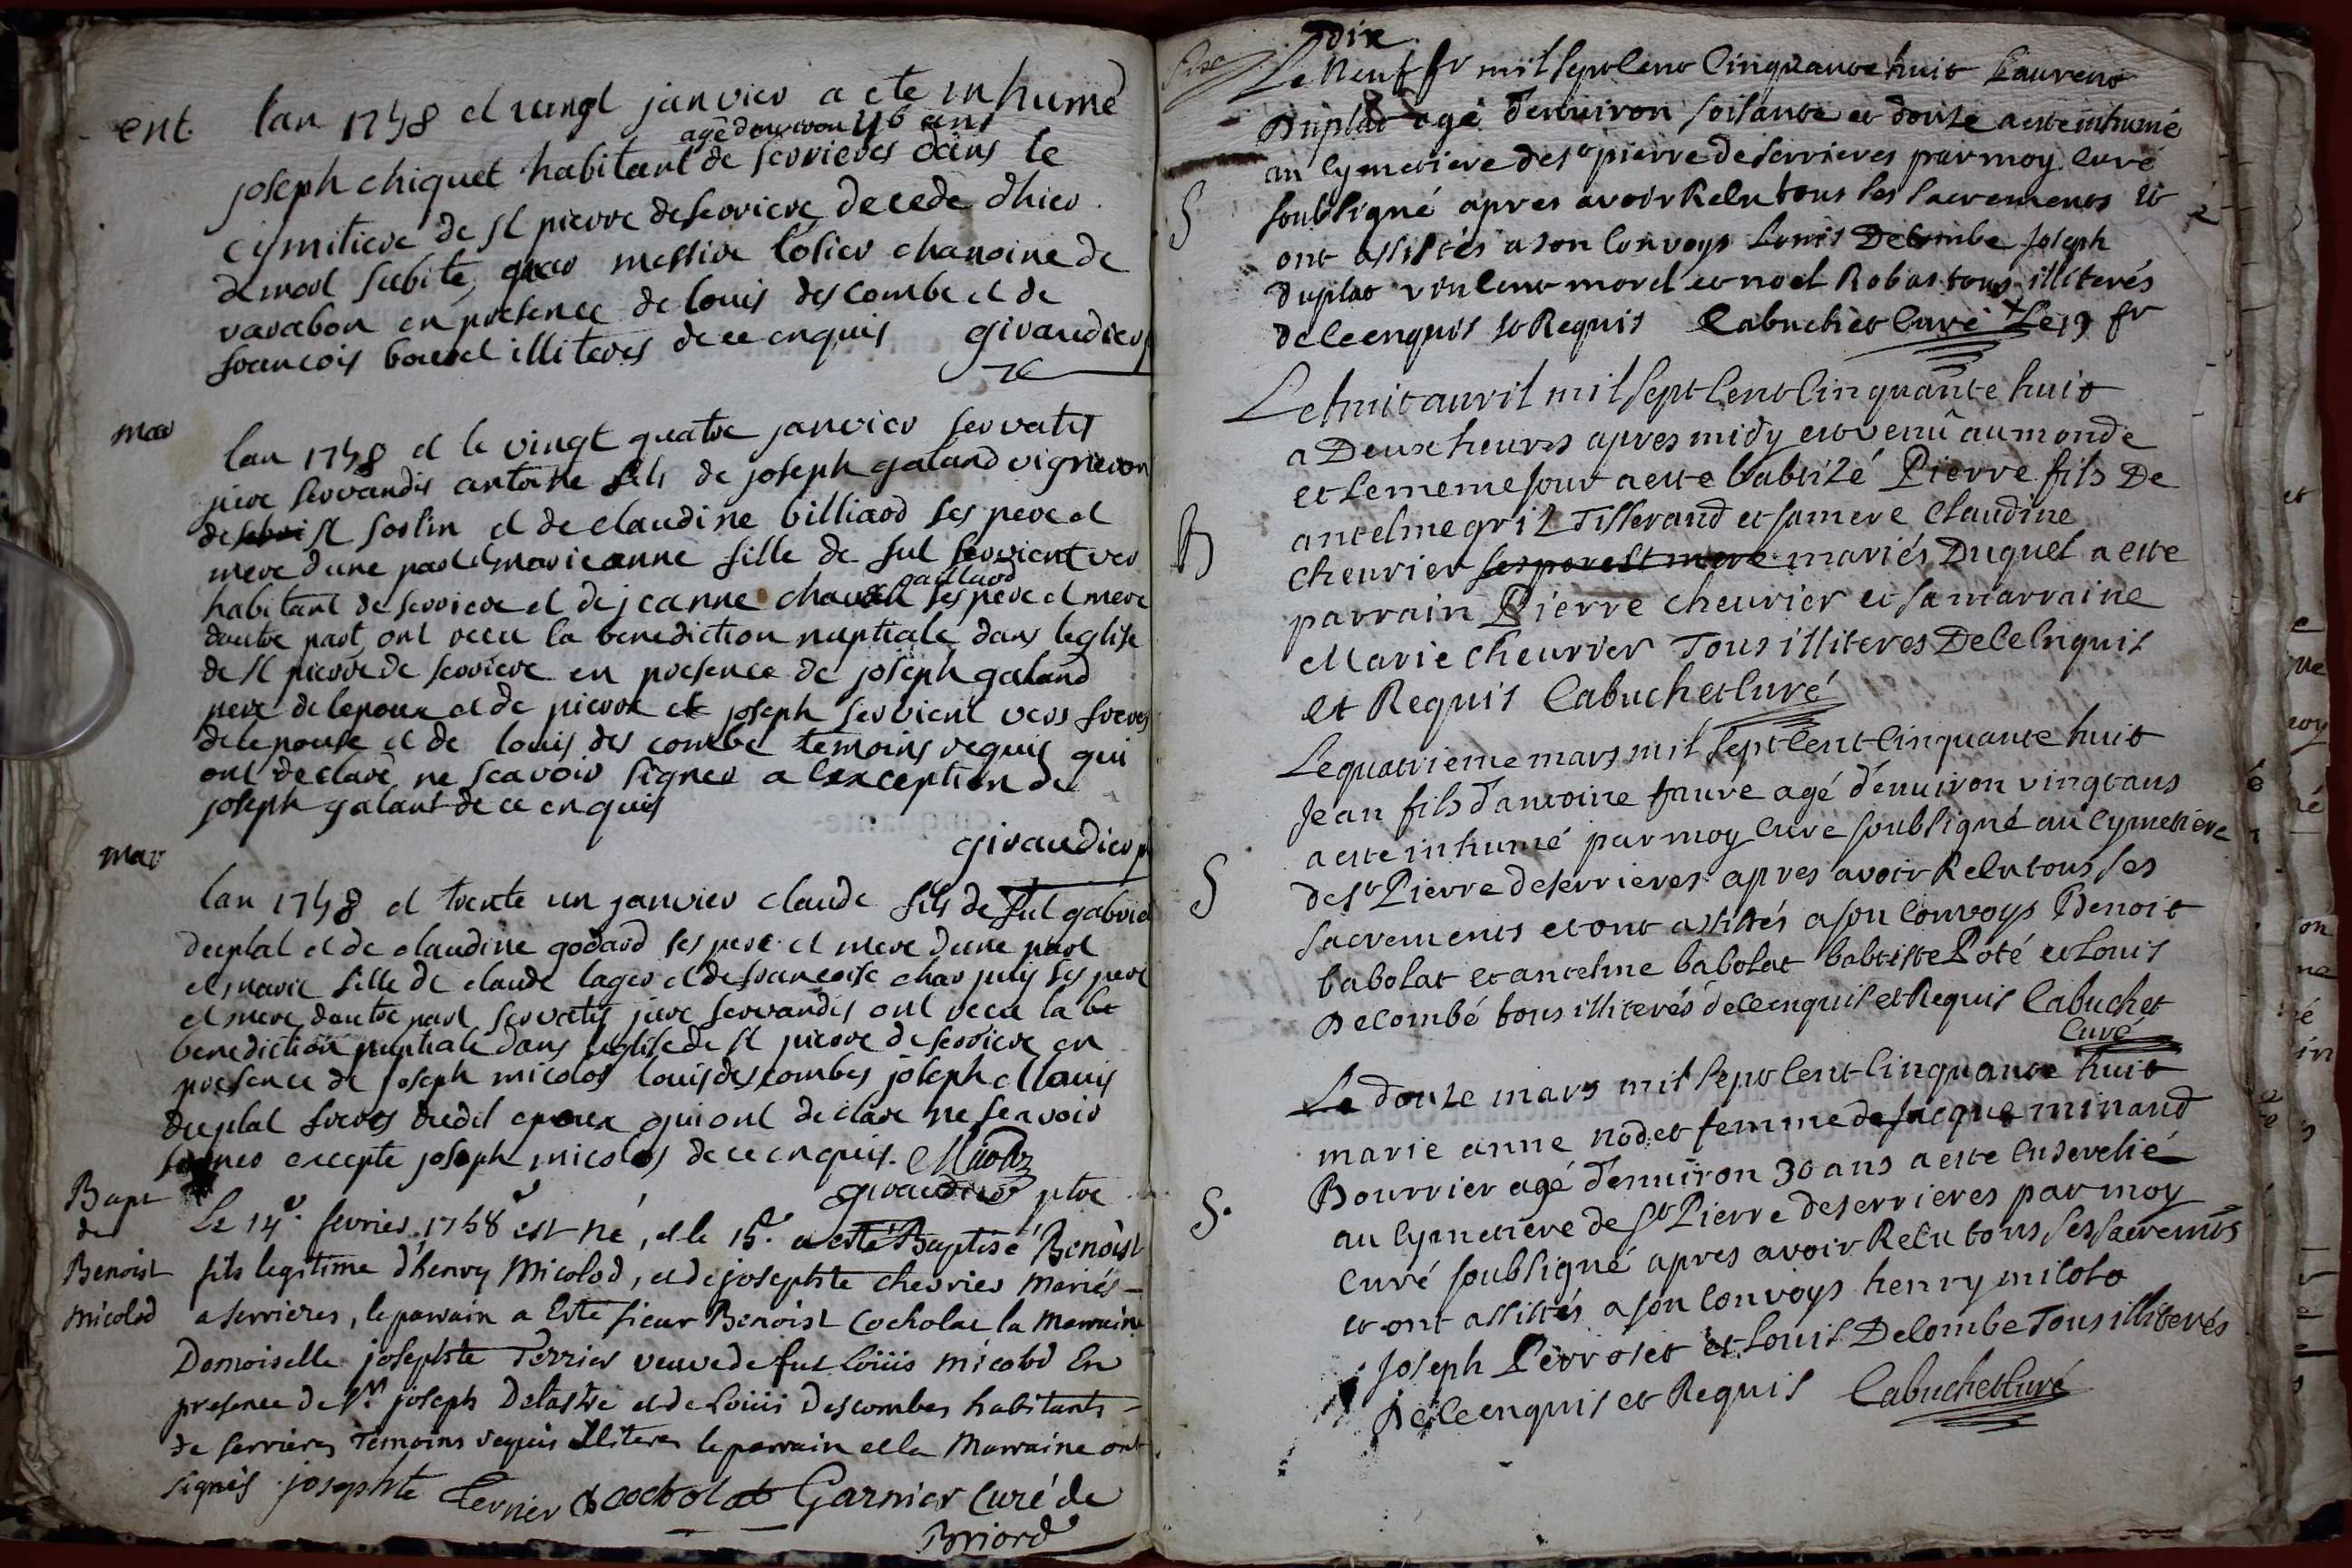 ent. lan 1758 et vingt janvier a ete inhumé
agé denviron 46 ans
joseph chiquet habitant de serrieres dans le
cymitiere de st pierre de serriere decede dhier
de mort subite, par messire losier chanoine de
varabon en presence de louis descombe et de
francois bouvet illiteres de ce enquis giraudier
mar
lan 1758 et le vingt quatre janvier servatis
jure servandis antoine fils de joseph galand vigneron
de st sorlin et de claudine billiard ses pere et
mere dune part et marieanne fille de fut servient ver
gaillard
habitant de serriere et de jeanne ses pere et mere
dautre part ont recu la benediction nuptiale dans leglise
de st pierre de serriere en presence de joseph galand
pere de lepoux et de pierre et joseph servient vers freres
de lepouse et de louis des combe temoins requis qui
ont declaré ne scavoir signer a lexception de
joseph galant de ce enquis
giraudier
mar
lan 1758 et trente un janvier claude fils de fut gabriel
duplat et de claudine godard ses pere et mere dune part
et marie fille de claude lager et de francoise charpuis ses pere
et mere dautre part servatis jure servandis ont recu la be
benediction nuptiale dans leglise de st pierre de serriere en
presence de joseph micolos louis descombes joseph et louis
duplat freres dudit epoux qui ont declare ne scavoir
signer excepte joseph micolos de ce enquis. Micoloz
giraudier ptre
Bapt
de
Benoist
Micolod
Le 14e. fevrier 1758 est né, et le 15e. a esté Baptisé Benoist
fils legitime d'henry Micolod, et de josephte chevrier Mariés
a serrieres, le parrain a Esté sieur Benoist Cocholat la Marraine
Demoiselle josephte Terrier veuve de fut Loüis micolod En
presence de Sr. joseph Delastre et de Loüis Descombes habitants
de serrieres Temoins requis Illiteres le parrain et la Marraine ont
signés josephte Terrier B cocholat Garnier Curé de
Briord
Dix
Le neuf fr mil sept Cent Cinquante huit Laurent
Duplat agé d'environ soisante et douze a este inhumé
au Cymetiere de st pierre de serrieres par moy Curé
S soubsigné apres avoir Recu tous ses sacrements et
ont assistés a son Convoys Louis Decombe Joseph
duplat vincent morel et noel Robas tous illiterés
de ce enquis et Requis Cabuchet Curé Le 19 fr
Le huit avril mil sept Cent Cinquante huit
a Deux heures apres midy est venû au monde
et le meme jour a este babtizé Pierre fils De
antelme gril Tisserand et sa mere Claudine
B Cheurier ses pere et mere mariés Duquel a este
parrain Pierre Cheurier et sa marraine
Marie Cheurier Tous illiteres De Ce Enquis
et Requis Cabuchet Curé
Le quatrieme mars mil sept Cent Cinquante huit
Jean fils d'antoine fauré agé d'environ vingt ans
a este inhumé par moy Curé soubsigné au Cymetiere
S de st Pierre de serrieres apres avoir Recu tous ses
sacrements et ont assistés a son Convoys Benoit
babolat et antelme babolat babtiste Poté et Louis
Decombé tous illiterés de Ce enquis et Requis Cabuchet
Curé
Le douze mars mil sept Cent Cinquante huit
marie anne nodet femme de jacque minand
Bourrier agé d'environ 30 ans a este Ensevelié
S. au Cymetiere de St Pierre de serrieres par moy
Curé soubsigné apres avoir Recu tous ses sacremts
et ont assistés a son Convoys henry micolo
Joseph Perroset et Louis Decombe Tous illiterés
De Ce enquis et Requis Cabuchet Curé